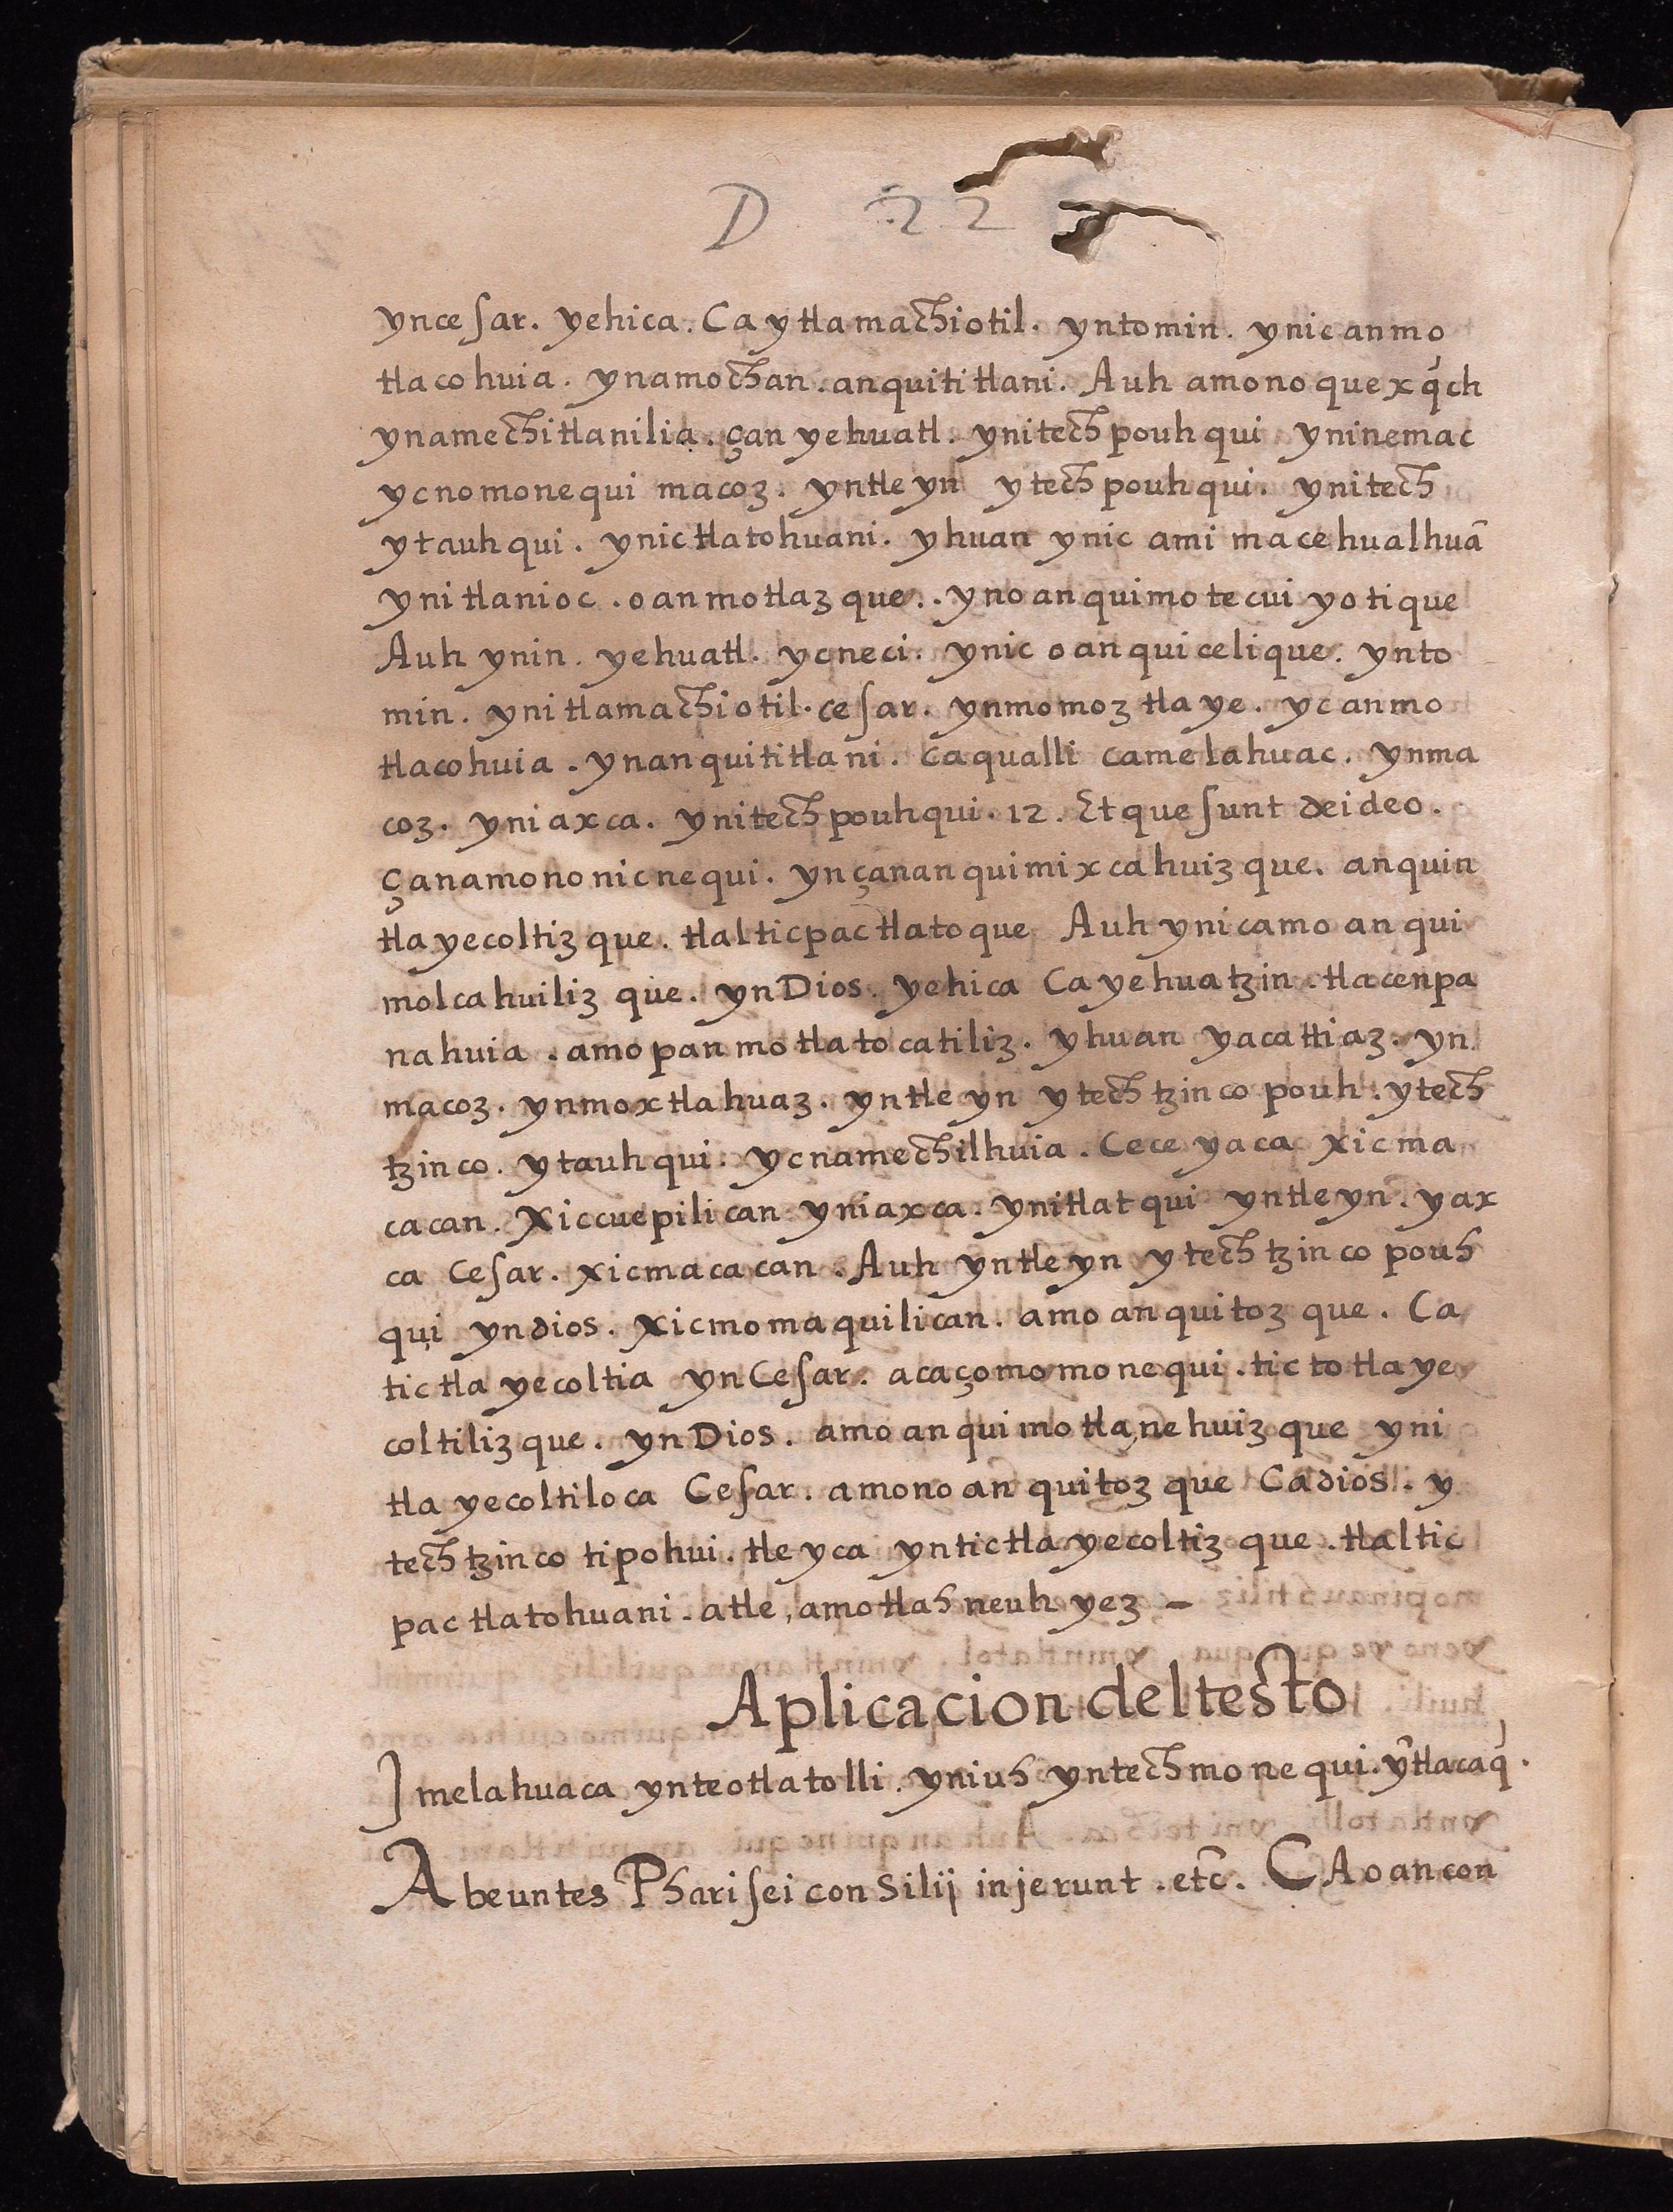 D 22
yncesar. yehica. Ca ytlamachiotil. yntomin. ynic anmo
tlacohuia. ynamochan. anquititlani. Auh amono quexq́ch
ynamechitlanilia. çan yehuatl. ynitech pouhqui yninemac
ycnomonequi macoz. yntleyn ytech pouhqui. ynitech
ytauhqui. ynic tlatohuani. yhuan ynic ami macehualhuā
ynitlanioc. oanmotlazque. ynoanquimotecuiyotique
Auh ynin. yehuatl. ycneci. ynic oanquicelique. ynto
min. ynitlamachiotil. cesar. ynmomoztlaye. ycanmo
tlacohuia. ynanquititlani. Caqualli camelahuac. ynma
coz. yniaxca. ynitech pouhqui. 12. Et que sunt dei deo.
Çanamono nicnequi. ynçanan quimixcahuizque. anquin
tlayecoltizque. tlalticpac tlatoque Auh ynicamo anqui
molcahuilizque. ynDios. yehica Ca yehuatzin. tlacenpa
nahuia. amopan motlatocatiliz. yhuan yacattiaz. yn
macoz. ynmoxtlahuaz. yntleyn ytechtzinco pouh. ytech
tzinco. ytauhqui. ycnamechilhuia. Cece yaca xicma
cacan. Xiccuepilican yniaxca. ynitlatqui yntleyn. yax
ca Cesar. xicmacacan. Auh yntleyn ytechtzinco pouh
qui yndios. Xicmomaquilican. amo anquitozque. Ca
tictlayecoltia ynCesar. acaçomo monequi. tictotlaye
coltilizque. ynDios. amo anquimotlanehuizque yni
tlayecoltiloca Cesar. amono anquitozque Cadios. y
techtzinco tipohui. tleyca yntictlayecoltizque. tlaltic
pac tlatohuani. atle, amotlahneuh yez –
Aplicacion deltesto
Imelahuaca ynteotlatolli. yniuh yntechmonequi. ỹtlacaq́.
Abeuntes Pharisei con Silij injerunt. etc̄. CA oancon